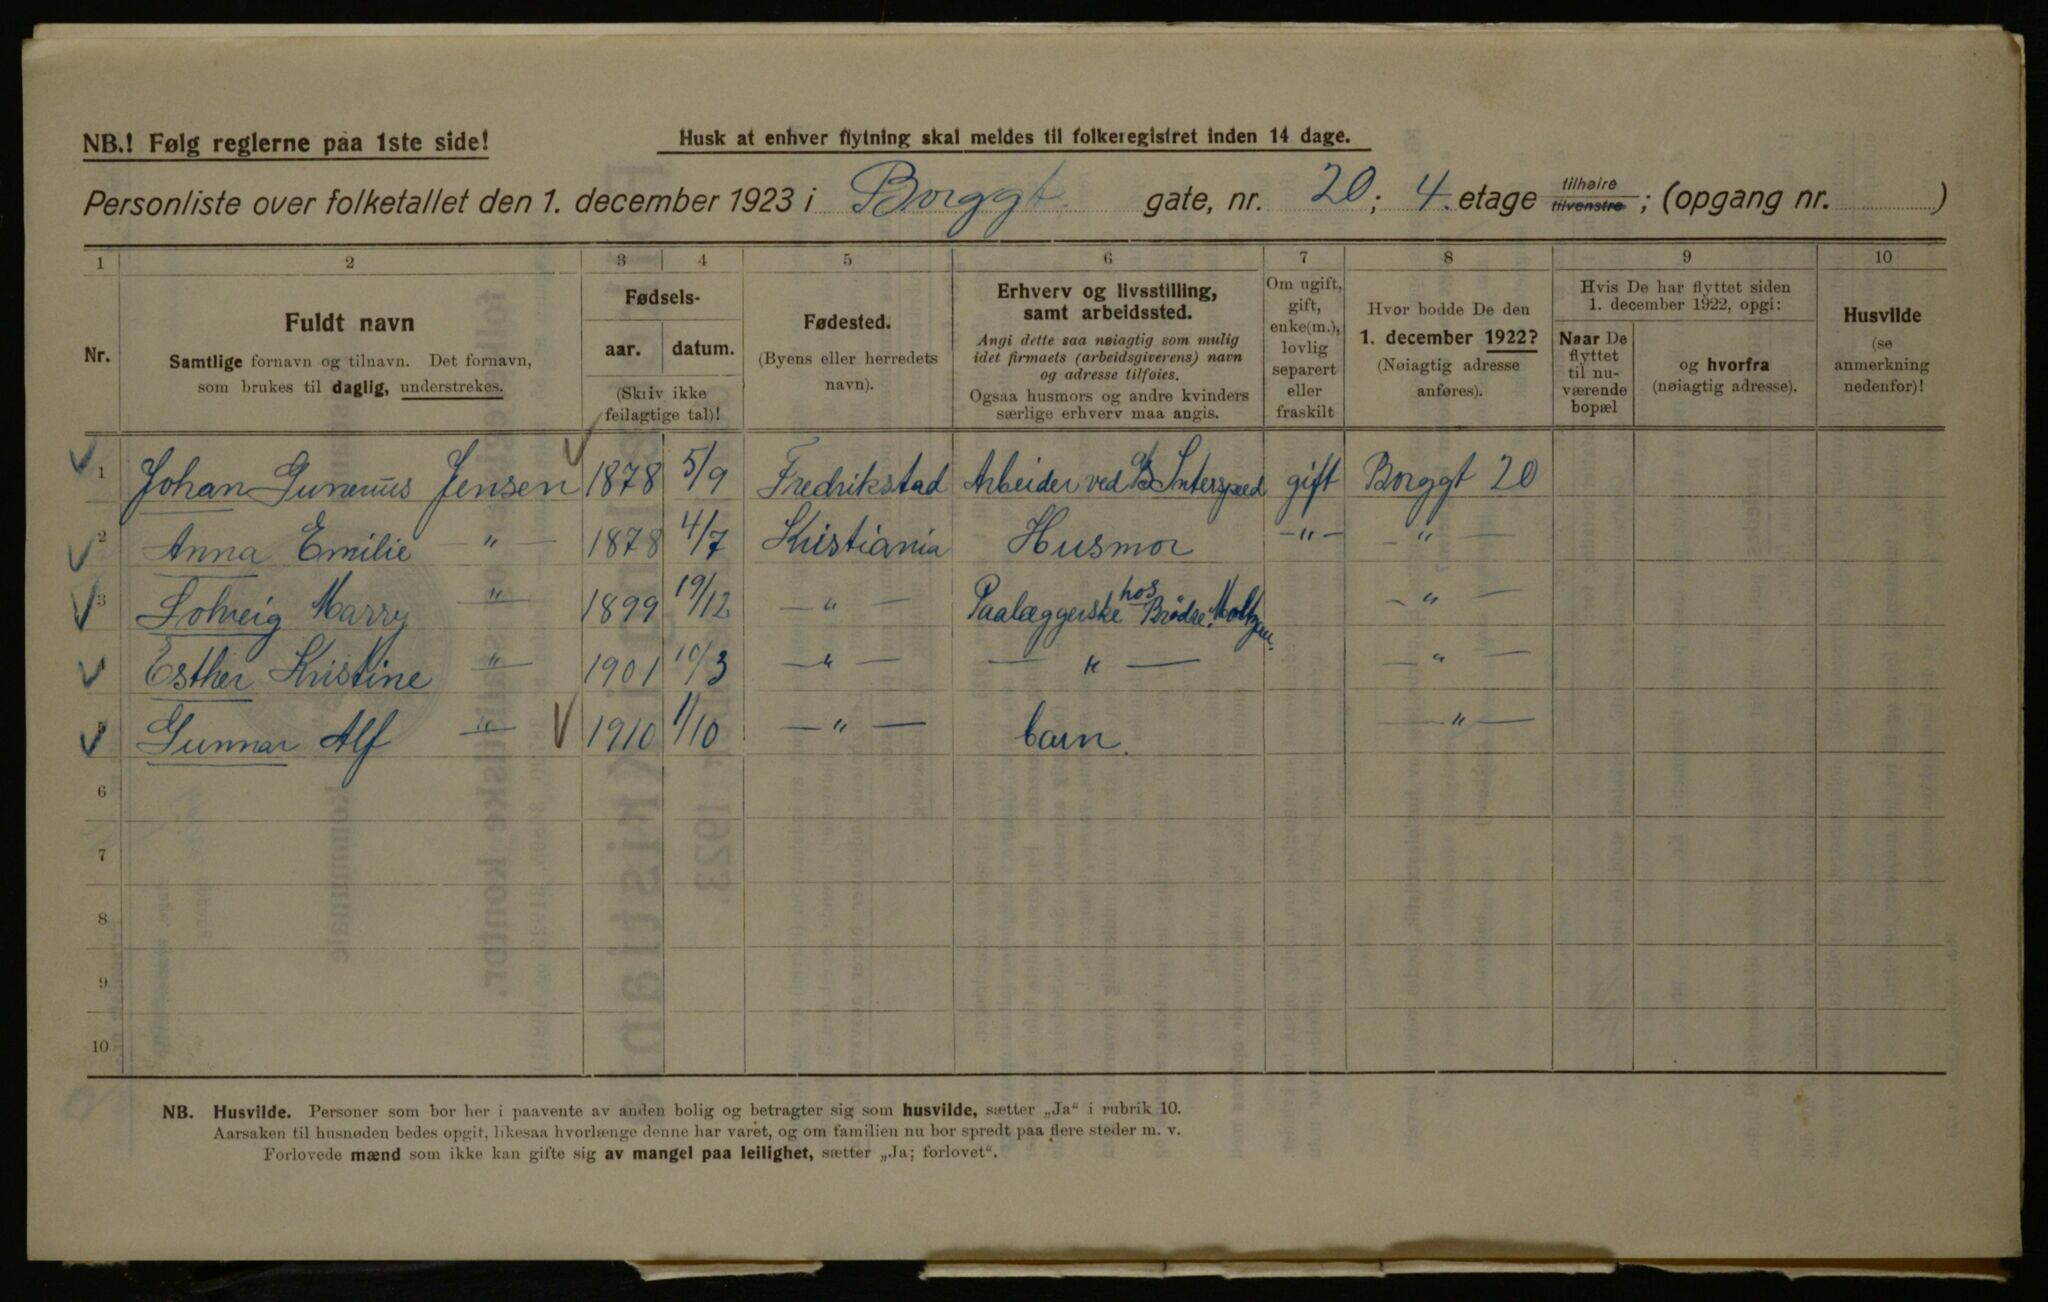 NB.! Følg reglerne paa 1ste side!
Husk at enhver flytning skal meldes til folkeregistret inden 14 dage.
Personliste over folketallet den 1. december 1923 i Borggt. gate, nr. 20; 4. etage tilhøire tilvenstre; (opgang nr. )
1 2 3 4 5 6 7 8 9 10
Nr.
Fuldt navn
Samtlige fornavn og tilnavn. Det fornavn,
som brukes til daglig, understrekes.
Fødsels-
aar. datum.
(Skriv ikke
feilagtige tal)!
Fødested.
(Byens eller herredets
navn).
Erhverv og livsstilling,
samt arbeidssted.
Angi dette saa nøiagtig som mulig
idet firmaets (arbeidsgiverens) navn
og adresse tilføies.
Ogsaa husmors og andre kvinders
særlige erhverv maa angis.
Om ugift,
gift,
enke(m.),
lovlig
separert
eller
fraskilt
Hvor bodde De den
1. december 1922?
(Nøiagtig adresse
anføres).
Hvis De har flyttet siden
1. december 1922, opgi:
Naar De
flyttet
til nu-
værende
bopæl
og hvorfra
(nøiagtig adresse).
Husvilde
(se
anmerkning
nedenfor)!
1 Johan Gunerius Jensen 1878 5/9 Fredrikstad Arbeider ved A/S Interspeed gift Borggt 20
2 Anna Emilie — " — 1878 4/7 Kristiania Husmor — " — — " —
3 Solveig Marry — " — 1899 19/12 — " — Paalæggerske hos Brødre — " —
Esther Kristine — " — 1901 10/3 — " — — " — — " —
5 Gunnar Alf — " — 1910 1/10 — " — barn. — " —
6
7
8
9
10
NB. Husvilde. Personer som bor her i paavente av anden bolig og betragter sig som husvilde, sætter „Ja“ i rubrik 10.
Aarsaken til husnøden bedes opgit, likesaa hvorlænge denne har varet, og om familien nu bor spredt paa flere steder m. v.
Forlovede mænd som ikke kan gifte sig av mangel paa leilighet, sætter „Ja; forlovet“.